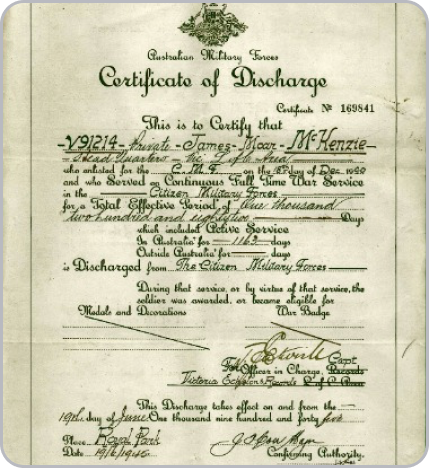 Australian Military Forces
Certificate of Discharge
Certificate No 169841
This is to Certify that
V91214 - Private - James - Moar - McKenzie -
Head Quarters - Vic L of C Area
who enlisted for the C.M.F. on the day of Dec 1940
and who Served on Continuous Full Time War Service
in the Citizen Military Forces
for a Total Effective Period of One thousand
two hundred and eighty two Days
which included Active Service
In Australia for 1163 days
Outside Australia for days
is Discharged from The Citizen Military Forces
During that service, or by virtue of that service, the
soldier was awarded, or became eligible for
Medals and Decorations War Badge
Capt
For Officer in Charge, Records
Victoria Echelon & Records L of C Area
This Discharge takes effect on and from the
19th day of June One thousand nine hundred and forty five
Place Royal Park
Date 19/6/1945 Confirming Authority.